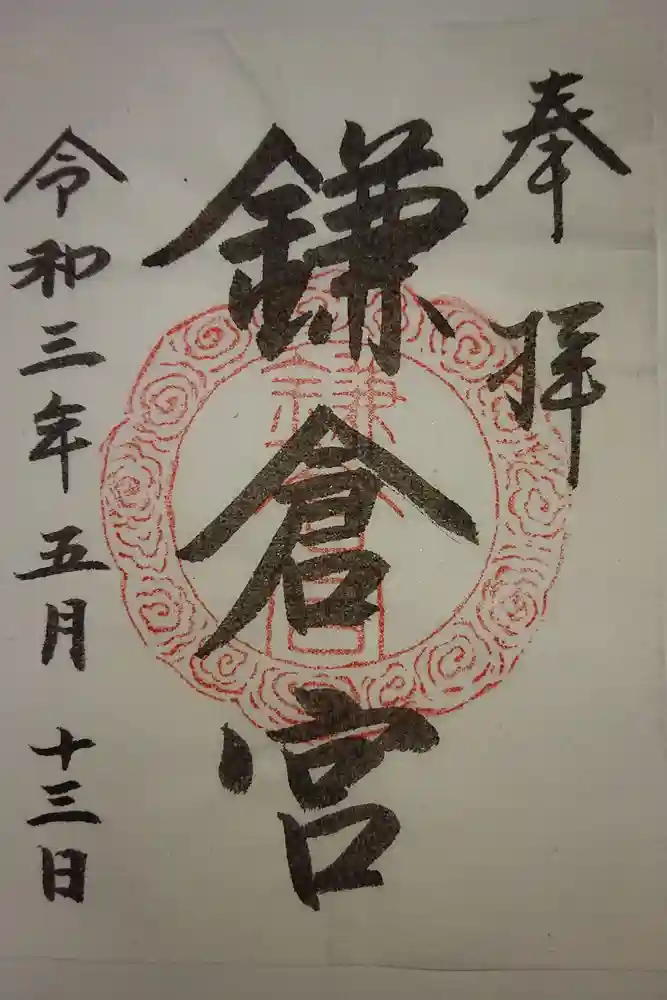 奉拝
鎌倉宮
令和三年五月十三日
鎌倉宮